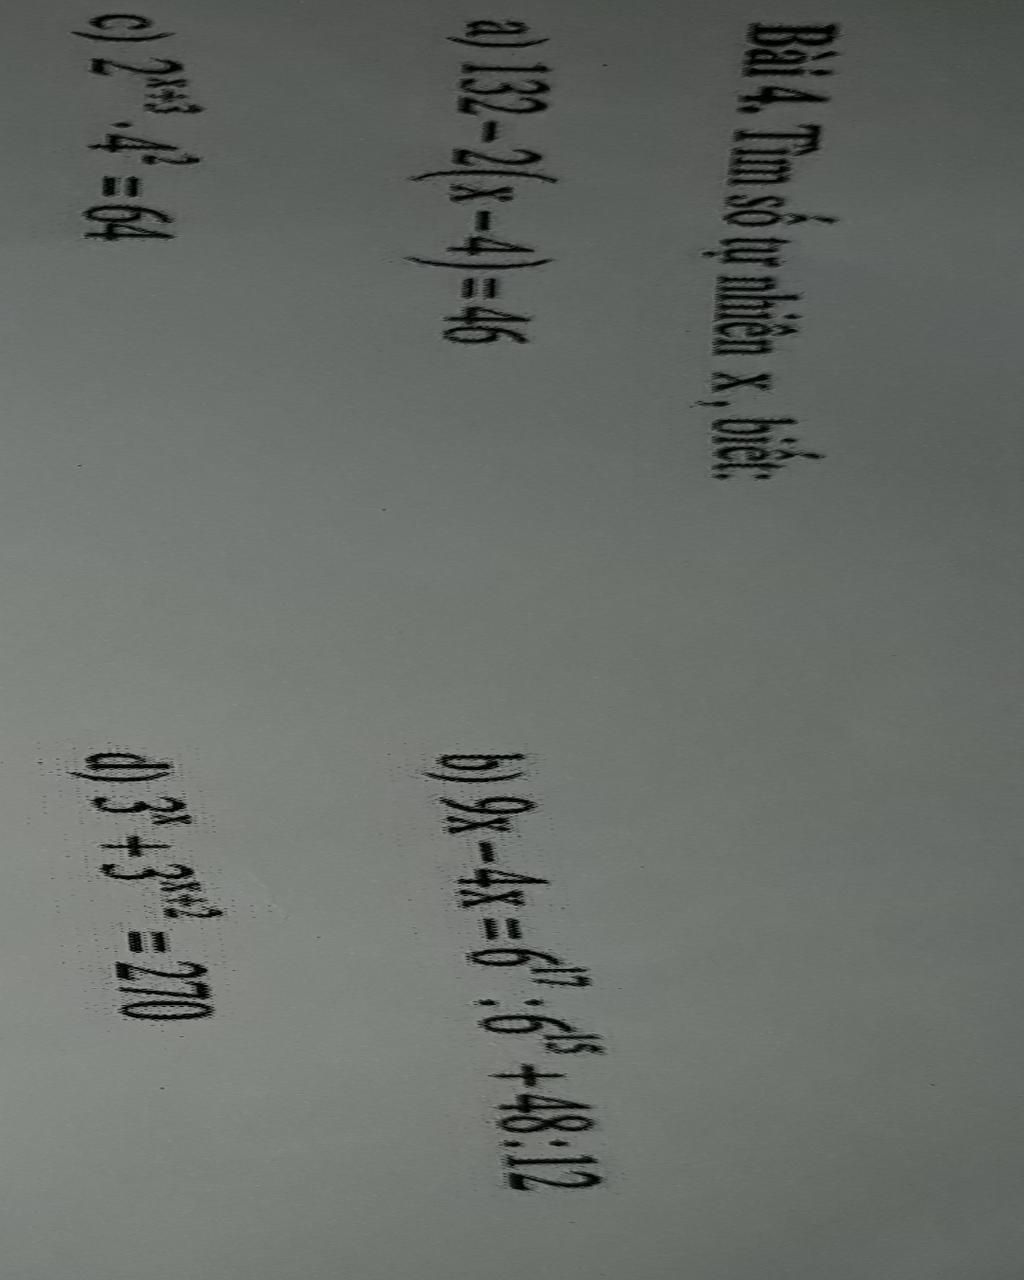 Bài 4. Tìm số tự nhiên x, biết:
a) 132 − 2(x − 4) = 46
b) 9x − 4x = 6¹⁷ : 6¹⁵ + 48 : 12
c) 2ˣ⁺³ . 4² = 64
d) 3ˣ + 3ˣ⁺² = 270